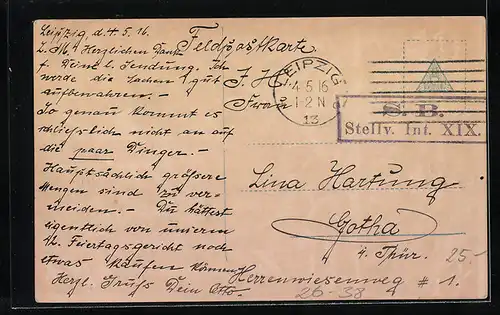 Leipzig, d. 4.5.16.
L. M! Herzlichen Dank
f. Deine l. Sendung. Ich
werde die Sachen gut
aufbewahren. –
So genau kommt es
schliesslich nicht an auf
die paar Dinger. –
Hauptsächlich grössere
Mengen sind zu ver-
meiden. – Du hättest
eigentlich von unserem
Feiertagsgericht noch
etwas kaufen können
Herzl. Gruß Dein Otto.
Feldpostkarte
Frau
LEIPZIG
4.5.16
1-2 N
13
S. B.
Stellv. Int. XIX.
Lina Hartung
Gotha
i. Thür.
Herrenwiesenweg # 1.
25-
26-38